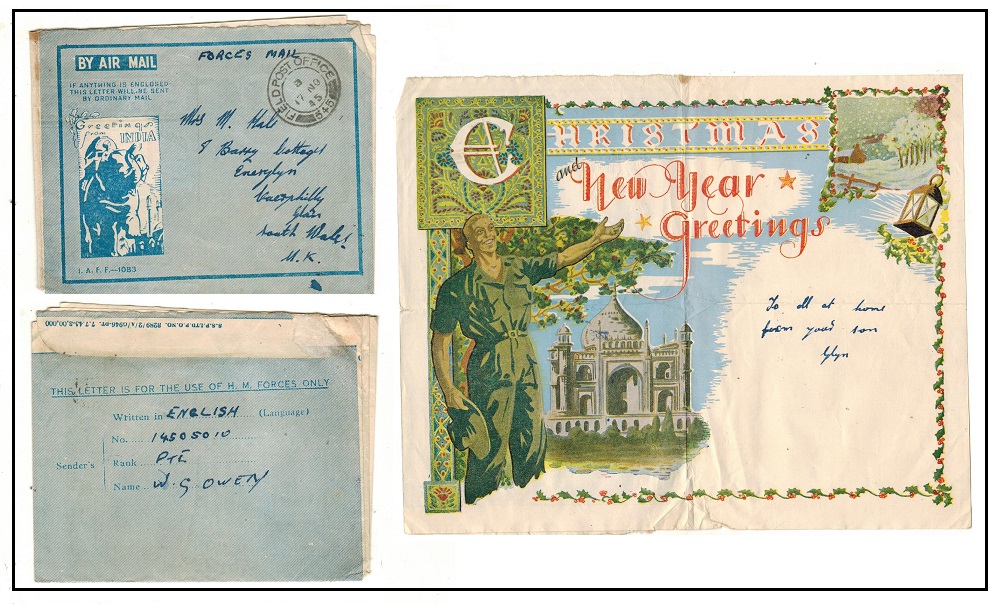 BY AIR MAIL
FORCES MAIL
IF ANYTHING IS ENCLOSED
THIS LETTER WILL BE SENT
BY ORDINARY MAIL
FIELD POST OFFICE
17 NO
45
545
Greetings
from INDIA
Mrs M. Hale
8 Bassy Cottages
Energlyn
Caerphilly
Glam
South Wales
U.K.
I. A. F. F.—1083
S.S.P.LTD.P.O.NO. 8289/2/A/0946-DT. 7.7.45-8,00,000
THIS LETTER IS FOR THE USE OF H. M. FORCES ONLY
Written in ENGLISH (Language)
No. 14505010
Sender's Rank PTE
Name W. G OWEN
CHRISTMAS
and New Year
Greetings
To all at home
from your son
Glyn